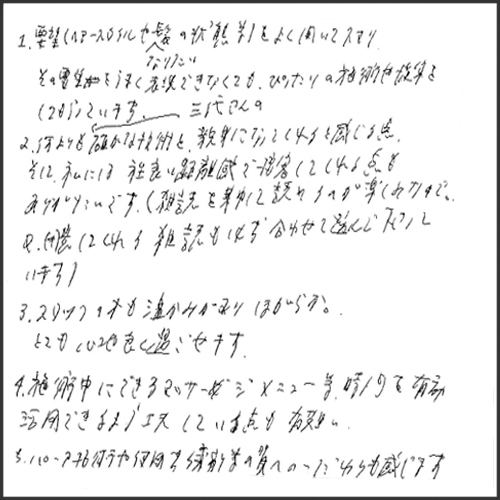 1. 要望(ヘアースタイルや髪の状態等)をよく聞いて下さり
なりたい
その要望をうまく表現できなくても、ぴったりの施術や提案を
して下さっています。 三代さんの
2. 何よりも確かな技術と、親身になってくれると感じる点。
それに、私には程良い距離感で接客してくれる点も
ありがたいです。(雑誌を集中して読めるのが楽しみなので。
用意してくれる雑誌も必ず合わせて選んで下さって
います)
3. スタッフの方も温かみがあり ほがらか。
とても心地良く過ごせます。
4. 施術中にできるマッサージメニュー等、時間を有効
活用できるよう工夫している点も有難い。
5. パーマ